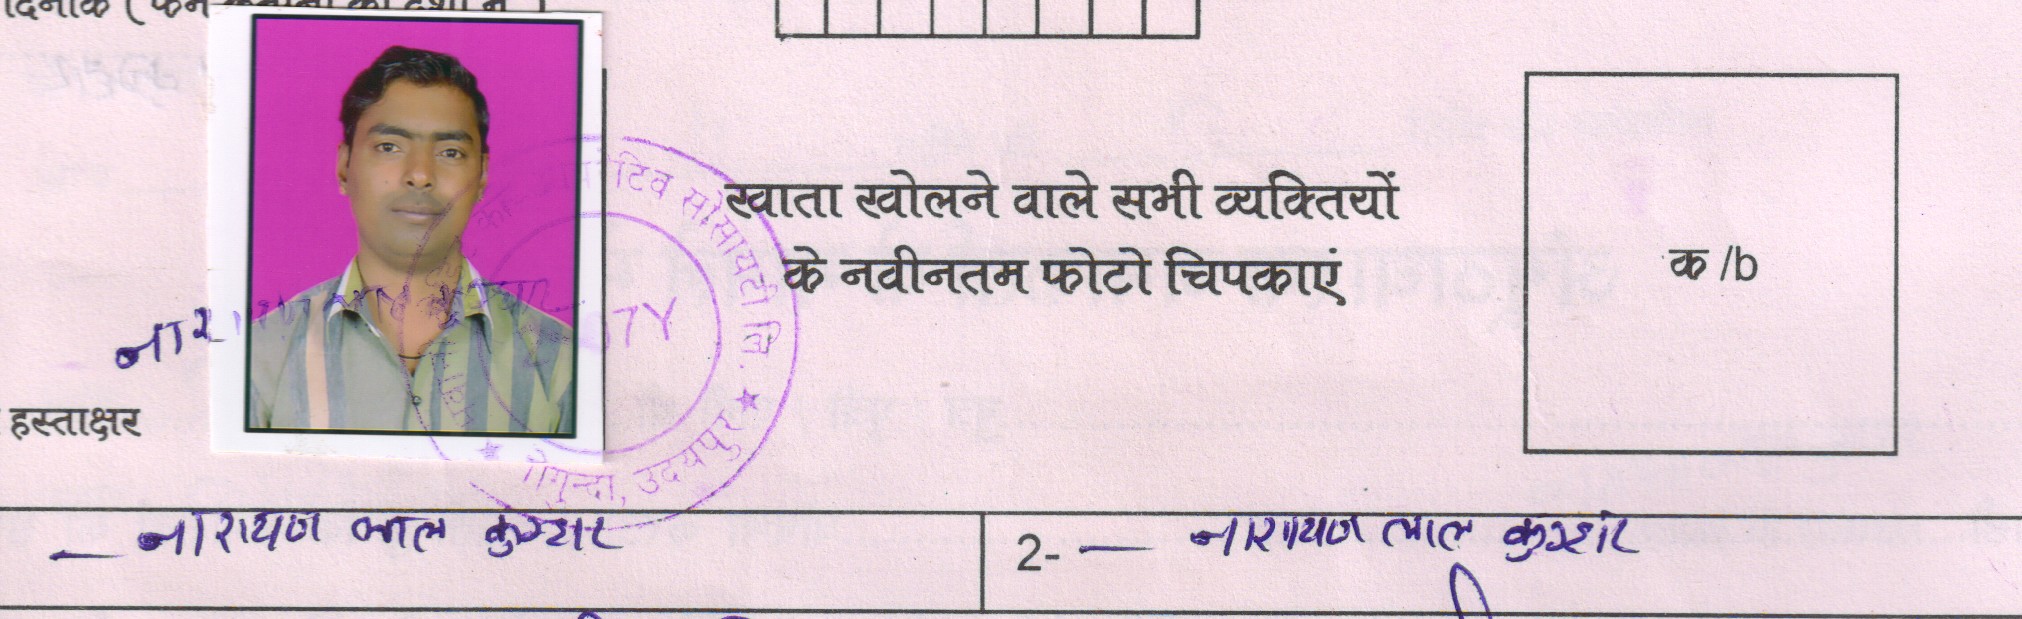 दिनांक (
खाता खोलने वाले सभी व्यक्तियों
के नवीनतम फोटो चिपकाएं
क /b
टिव सोसायटी लि. ★ गोगुन्दा, उदयपुर ★
07Y
नारायण लाल कुम्हार
हस्ताक्षर
नारायण लाल कुम्हार
2- नारायण लाल कुम्हार